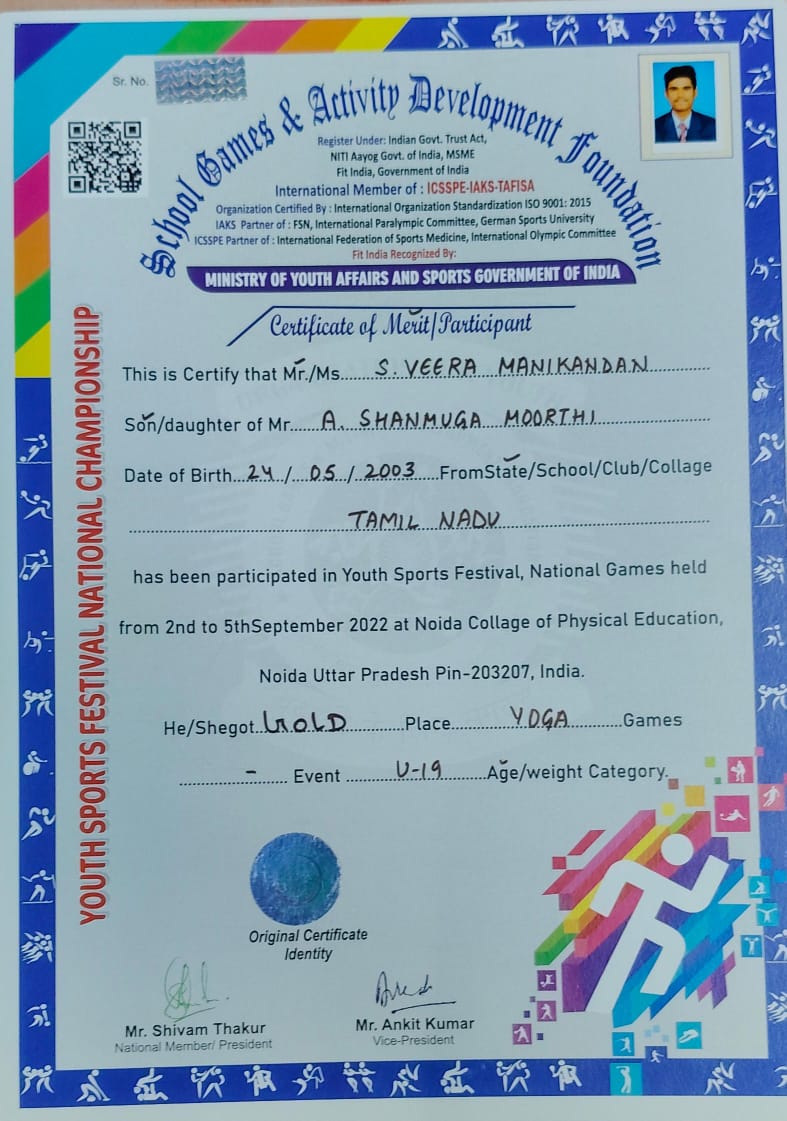 Sr. No.
School Games & Activity Development Foundation
Register Under: Indian Govt. Trust Act,
NITI Aayog Govt. of India, MSME
Fit India, Government of India
International Member of : ICSSPE-IAKS-TAFISA
Organization Certified By : International Organization Standardization ISO 9001: 2015
IAKS Partner of : FSN, International Paralympic Committee, German Sports University
ICSSPE Partner of : International Federation of Sports Medicine, International Olympic Committee
Fit India Recognized By:
MINISTRY OF YOUTH AFFAIRS AND SPORTS GOVERNMENT OF INDIA
Certificate of Merit/Participant
YOUTH SPORTS FESTIVAL NATIONAL CHAMPIONSHIP
This is Certify that Mr./Ms...... S. VEERA MANIKANDAN
Son/daughter of Mr...... A. SHANMUGA MOORTHI
Date of Birth...24../...05../..2003....FromState/School/Club/Collage
TAMIL NADU
has been participated in Youth Sports Festival, National Games held
from 2nd to 5thSeptember 2022 at Noida Collage of Physical Education,
Noida Uttar Pradesh Pin-203207, India.
He/Shegot..GOLD..........Place..........YOGA..........Games
- Event ..........U-19........Age/weight Category.
Original Certificate
Identity
Mr. Shivam Thakur
National Member/ President
Mr. Ankit Kumar
Vice-President